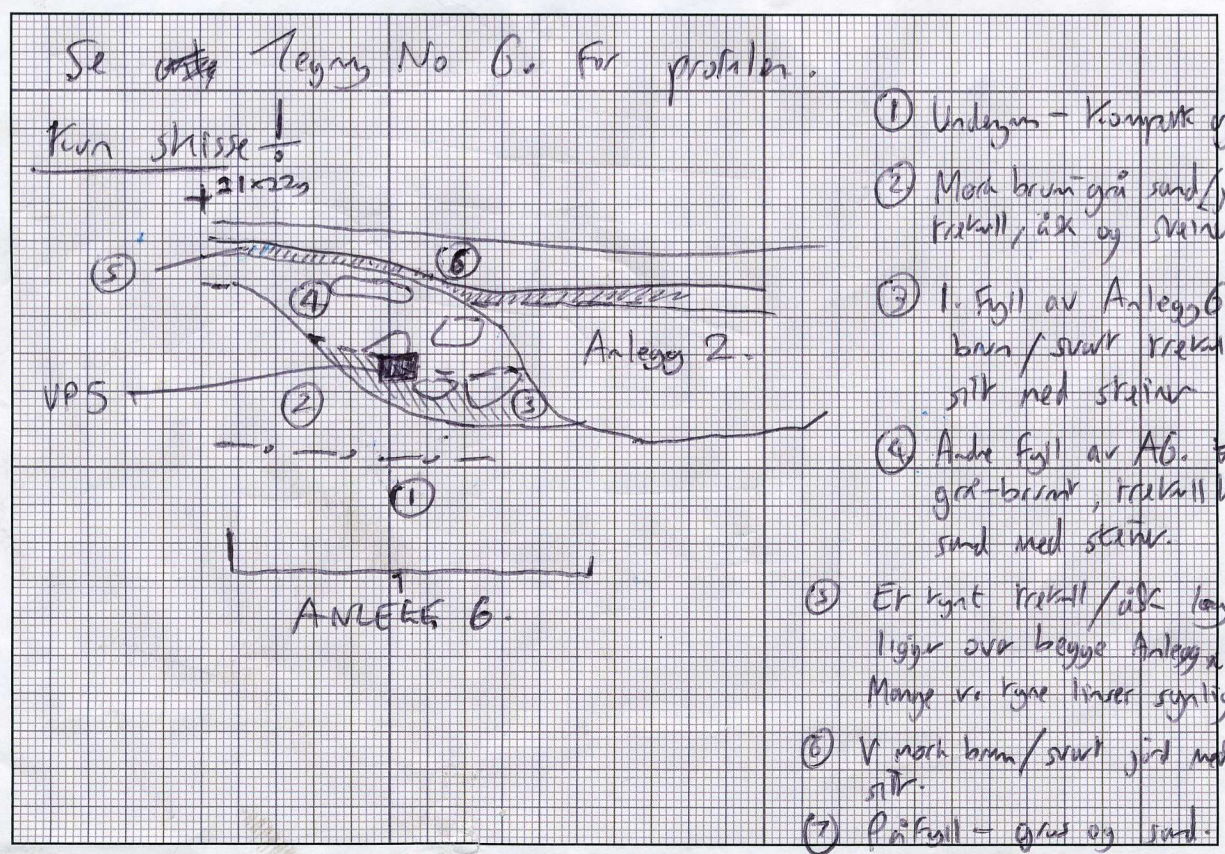 Se Tegning No 6. For profilen.
Kun skisse
+ 21x22
5
6
4
Anlegg 2.
VP5
2
3
1
ANLEGG 6.
① Undergrn - Kompakt
② Mork brun-grå sand/
trekull, åsk og steiner
③ 1. Fyll av Anlegg 6
brun / svart trekull
silt med steiner
④ Andre Fyll av A6.
grå-brunt, trekull
sand med steiner.
⑤ Et tynt trekull / åsk lag
ligger over begge Anlegg
Mange v. tyne linser synlig
⑥ V mork brun / svart jord med
silt.
⑦ Påfyll - grus og sand.